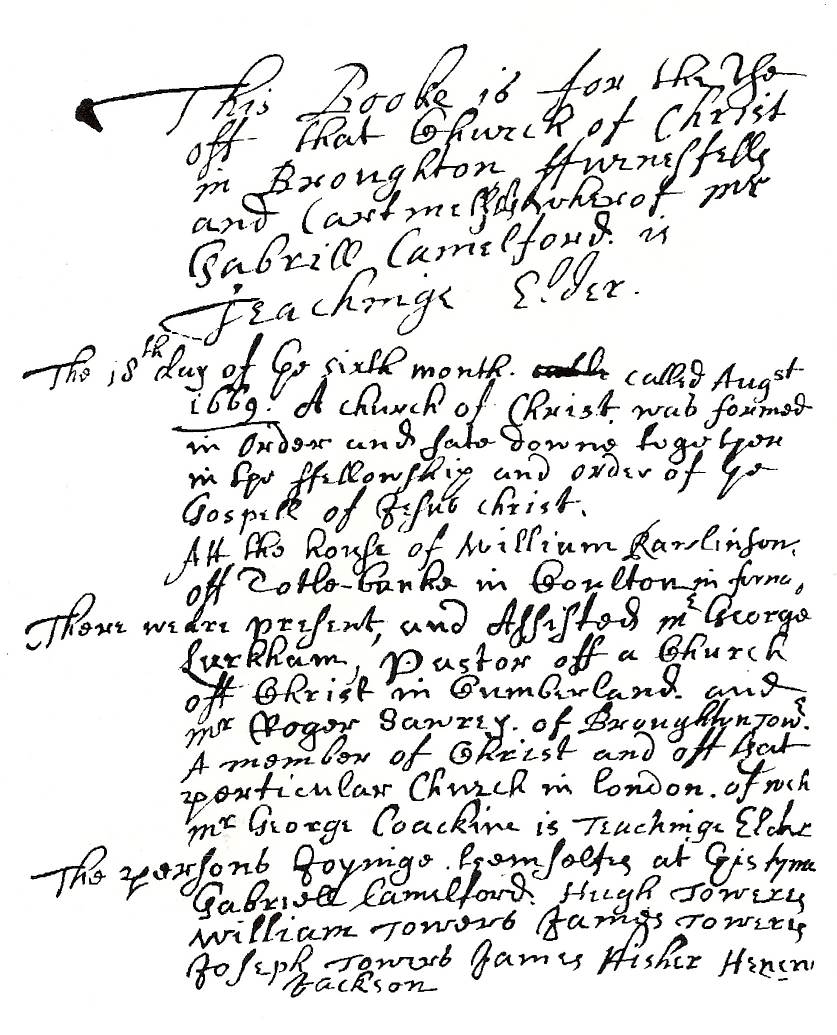 This Booke is for the the
off that Church of Christ
in Broughton ffurnesfells
and Cartmell wherof mr
Gabrill Camelford. is
Teachinge Elder.
The 18th day of ye sixth month. called Augst
1669. A church of Christ was formed
in order and sate downe together
in the ffellowship and order of ye
Gospell of Jesus christ.
Att the house of William Rawlinson,
off Totle-banke in Coulton in
There weare present, and Assisted mr George
Larkham, Pastor off a Church
off Christ in Cumberland. and
mr Roger Sawrey. of Broughton Towr.
A member of Christ and off that
perticular Church in london. of wch
mr George Coackine is Teachinge Elder
The persons Joyninge themselves at this tyme
Gabriell Camelford. Hugh Towers
William Towers James Towers
Joseph Towers James Fisher Henery
Jackson